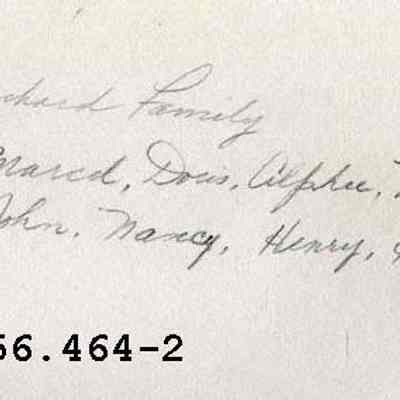 chard Family
Marcel, Doris, Alphee,
John, Nancy, Henry, &
56.464-2